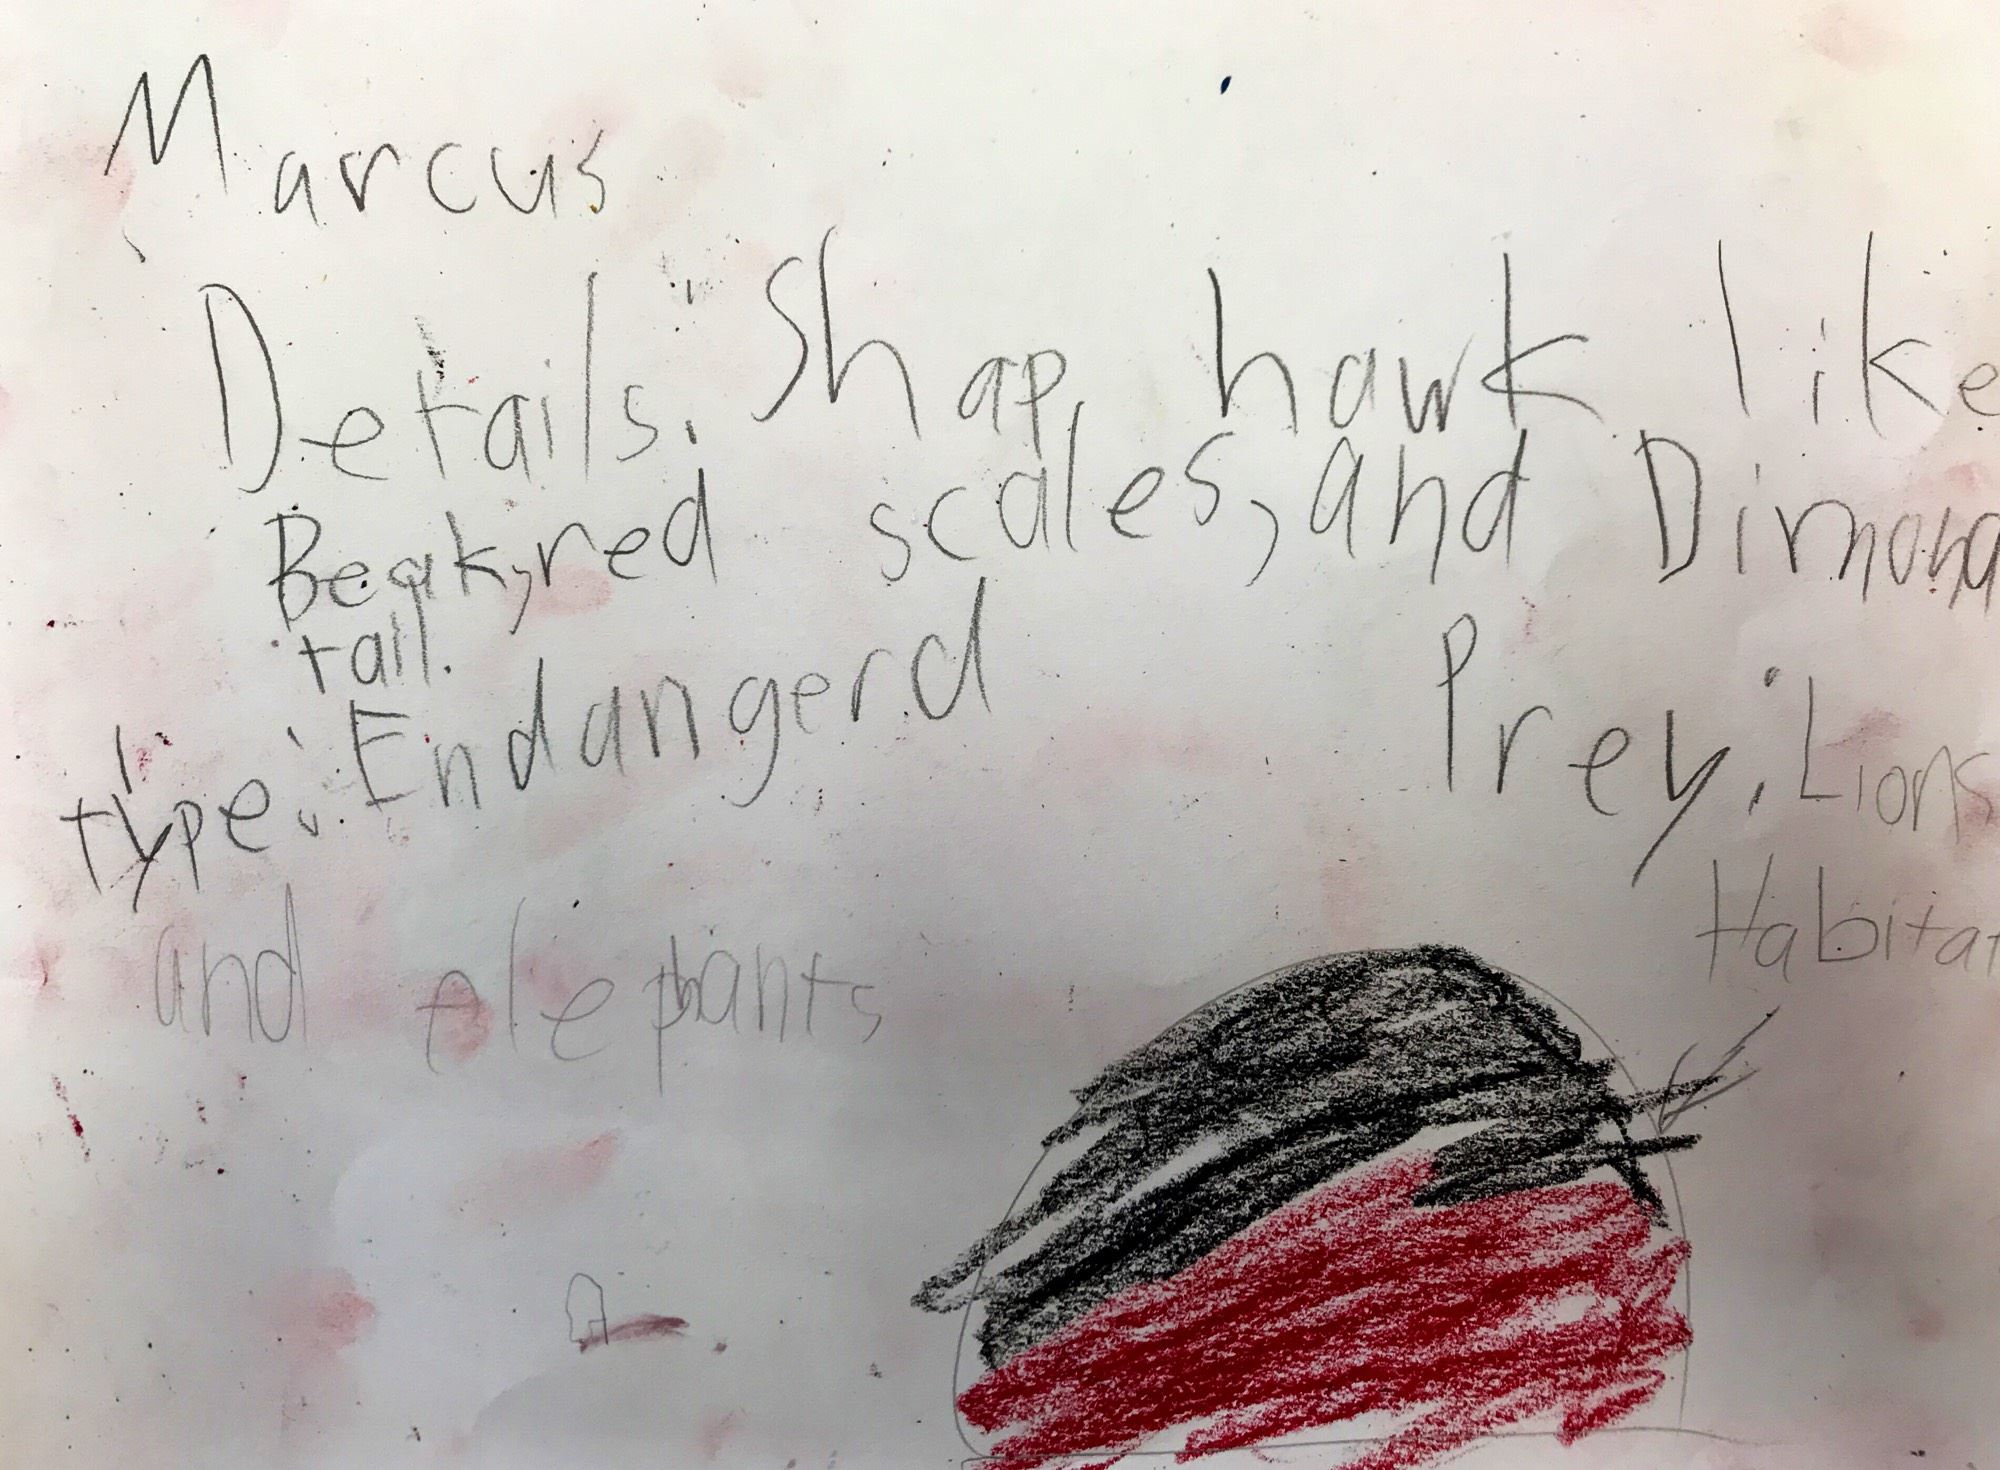 Marcus
Details: Shap hawk like
Beak, red scales, and Dimond
tail.
type: Endangerd
Prey: Lions
and elephants
Habitat